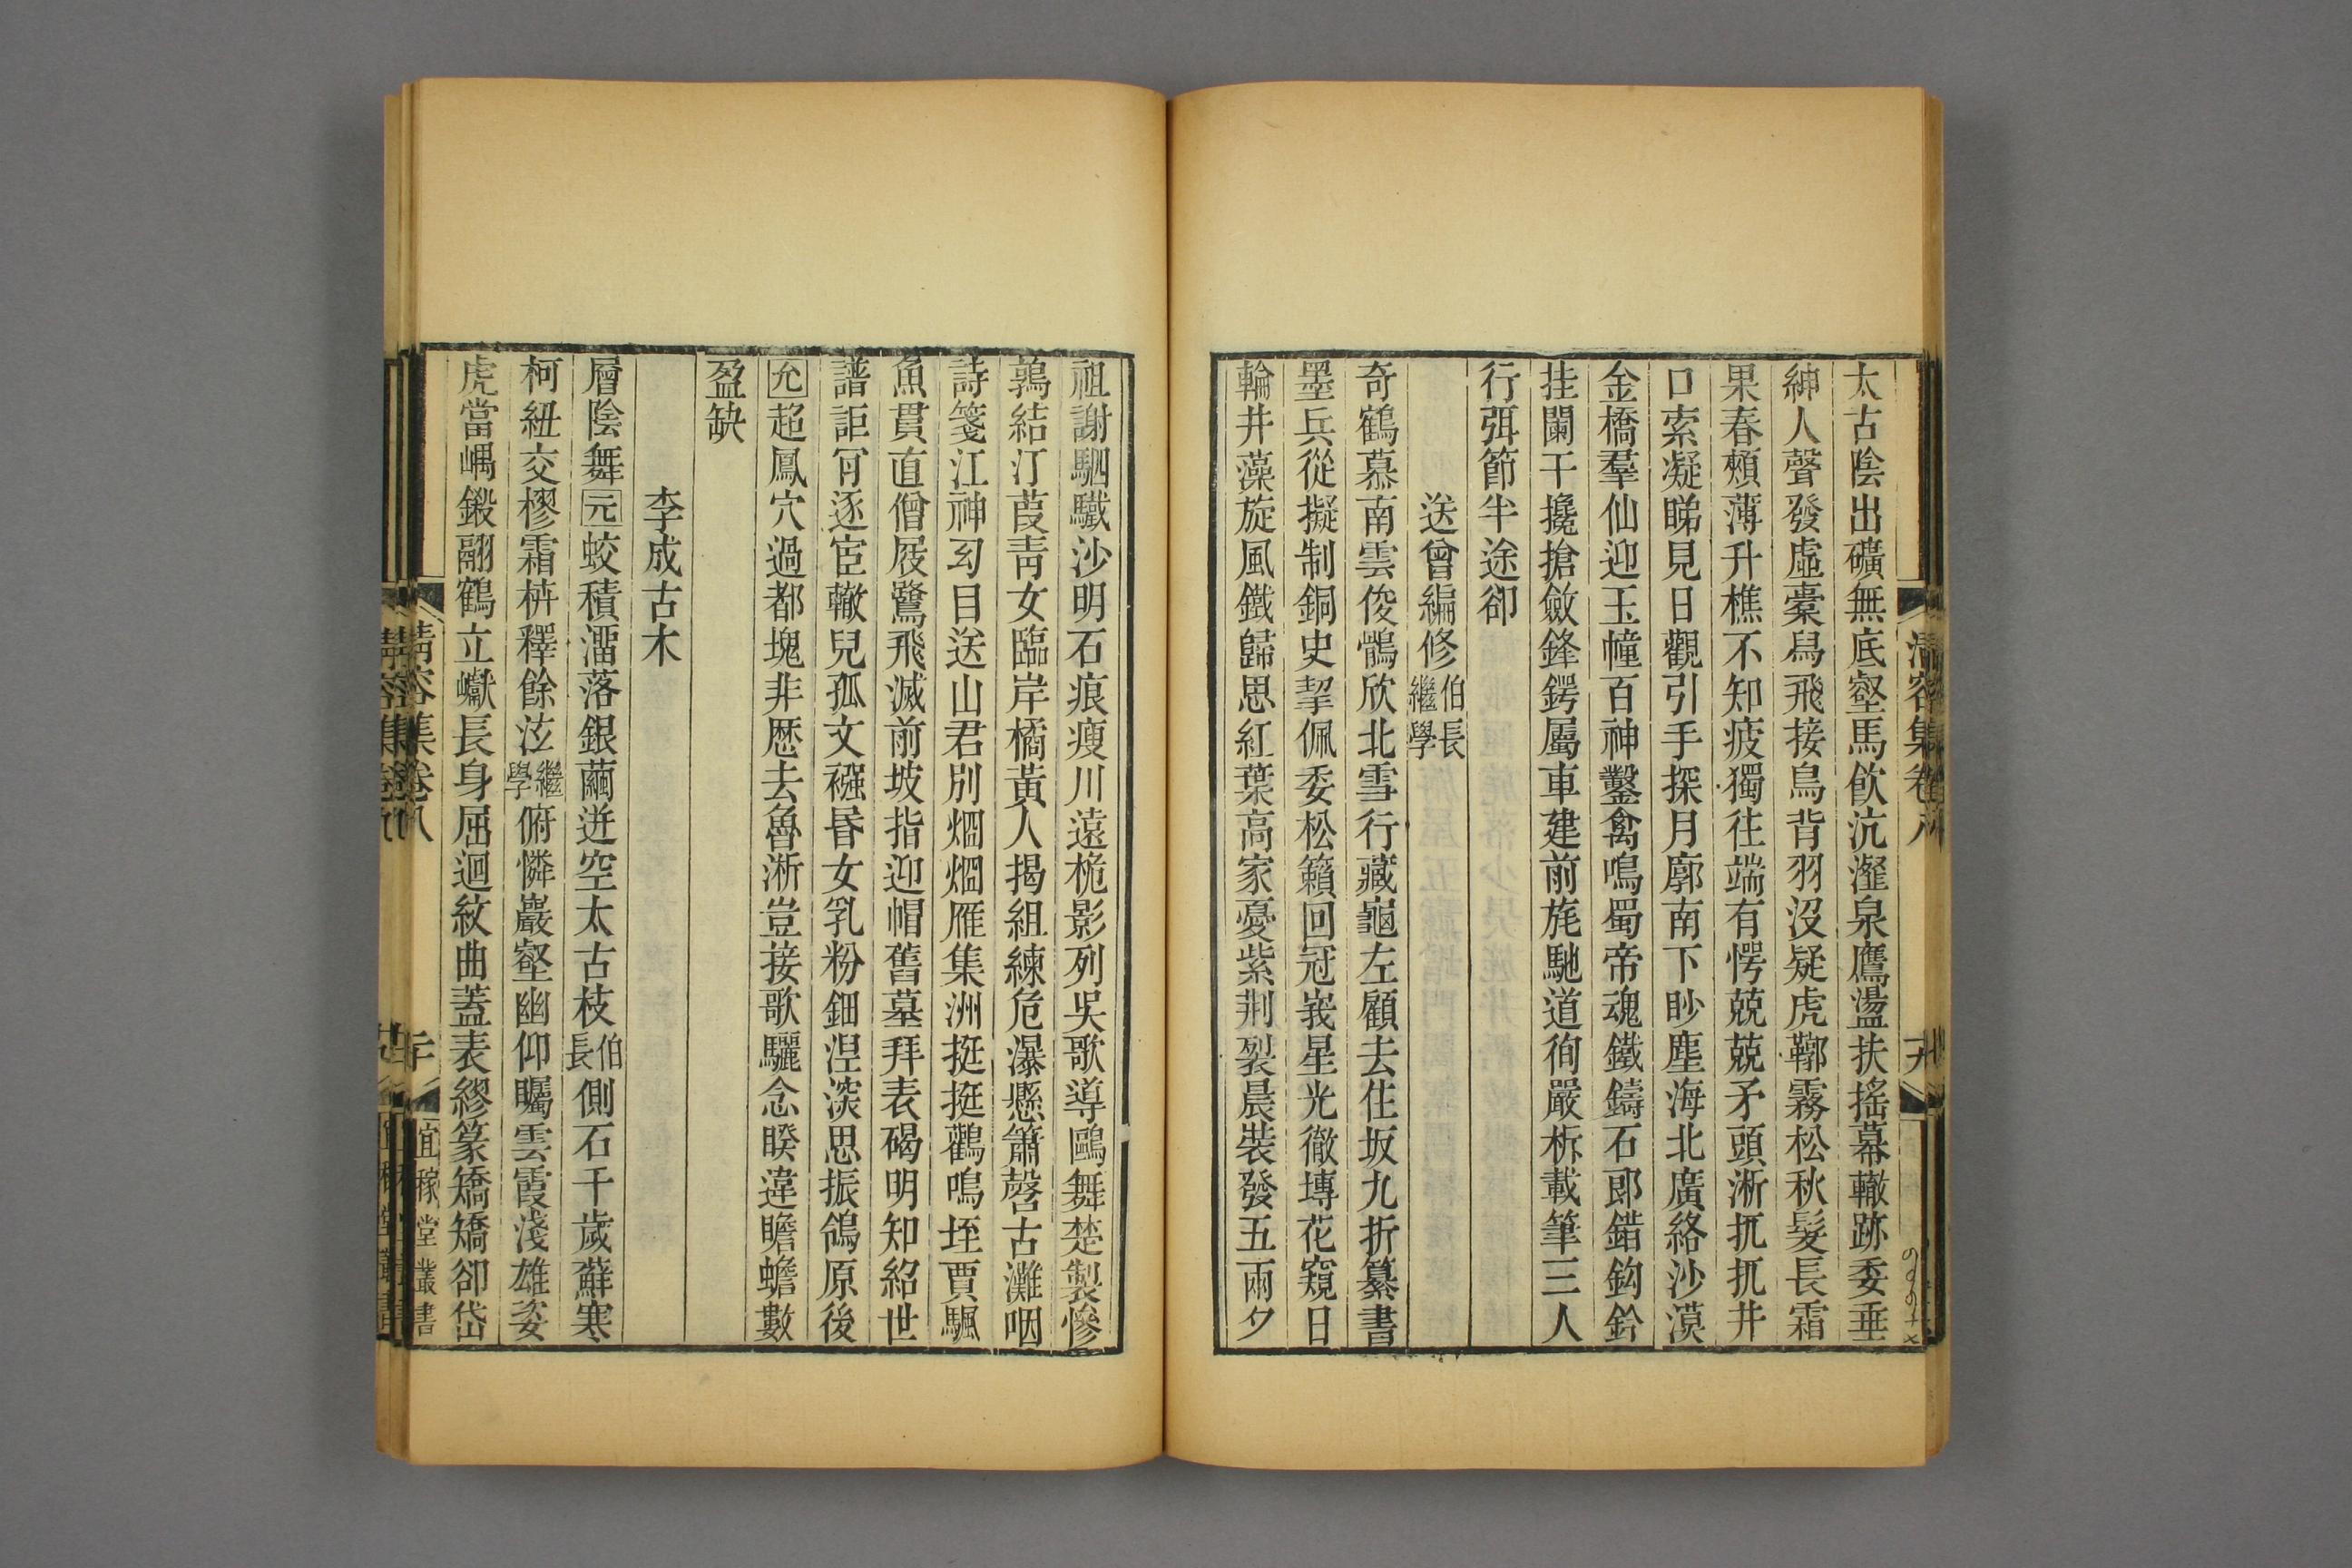 太古陰出礦無底壑馬飲沆瀣泉鷹盪扶搖幕轍跡委垂
紳人聲發虛橐舄飛接鳥背羽沒疑虎鞹霧松秋髮長霜
果春頰薄升樵不知疲獨往端有愕兢兢矛頭淅扤扤井
口索凝睇見日觀引手探月廓南下眇塵海北廣絡沙漠
金橋羣仙迎玉幢百神鑿禽鳴蜀帝魂鐵鑄石郎錯鈎鈐
挂闌干攙搶斂鋒鍔屬車建前旄馳道徇嚴柝載筆三人
行弭節半途卻
送曾編修伯長繼學
奇鶴慕南雲俊鶻欣北雪行藏龜左顧去住坂九折纂書
墨兵從擬制銅史挈佩委松籟回冠峩星光徹塼花窺日
輪井藻旋風鐵歸思紅葉高家憂紫荆裂晨裝發五兩夕
祖謝駟驖沙明石痕瘦川遠桅影列吳歌導鷗舞楚製慘
鶉結汀葭靑女臨岸橘黃人揭組練危瀑懸簫磬古灘咽
詩箋江神匃目送山君別烟烟雁集洲挺挺鸛鳴垤賈颿
魚貫直僧屐鷺飛滅前坡指迎帽舊墓拜表碣明知紹世
譜詎冐逐宦轍兒孤文襁昬女乳粉鈿涅淡思振鴒原後
允趨鳳穴過都塊非歷去魯淅豈接歌驪念睽違瞻蟾數
盈缺
李成古木
層陰舞元蛟積溜落銀繭迸空太古枝伯長側石千歲蘚寒
柯紐交樛霜枿釋餘泫繼學俯憐巖壑幽仰矚雲霞淺雄姿
虎當嵎鎩翮鶴立巘長身屈迴紋曲蓋表繆篆矯矯卻岱
清容集卷八
二十
宜稼堂叢書